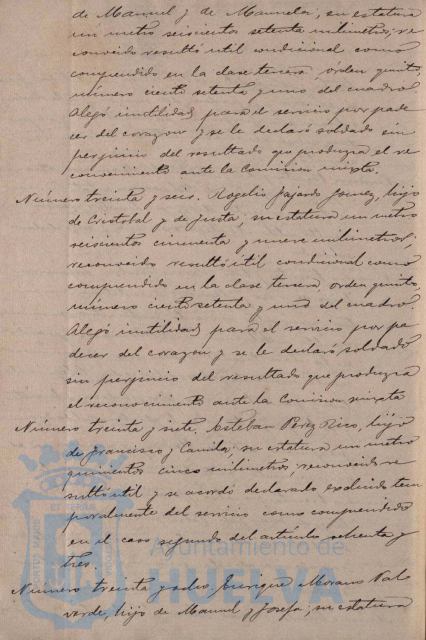 de Manuel y de Manuela; su estatura
un metro seiscientos setenta milimetros; re
conocido resultó útil condicional como
comprendido en la clase tercera, órden quinto,
número ciento setenta y uno del cuadro.
Alegó inutilidad para el servicio por pade
cer del corazon y se le declaró soldado sin
perjuicio del resultado que produzca el re
conocimiento ante la Comision mixta.
Número treinta y seis. Rogelio Fajardo Gomez, hijo
de Cristobal y de Justa; su estatura un metro
seiscientos cincuenta y nueve milimetros;
reconocido resultó útil condicional como
comprendido en la clase tercera, orden quinto,
número ciento setenta y uno del cuadro.
Alegó inutilidad para el servicio por pa
decer del corazon y se le declaró soldado
sin perjuicio del resultado que produzca
el reconocimiento ante la Comision mixta
Número treinta y siete, Esteban Perez Rico, hijo
de Francisco y Camila; su estatura un metro
quinientos cinco milimetros, reconocido re
sultó útil y se acordó declararlo excluido tem
poralmente del servicio como comprendido
en el caso segundo del artículo ochenta y
tres.
Número treinta y ocho, Enrique Morano Val
verde, hijo de Manuel y Josefa; su estatura
Ayuntamiento de
HUELVA